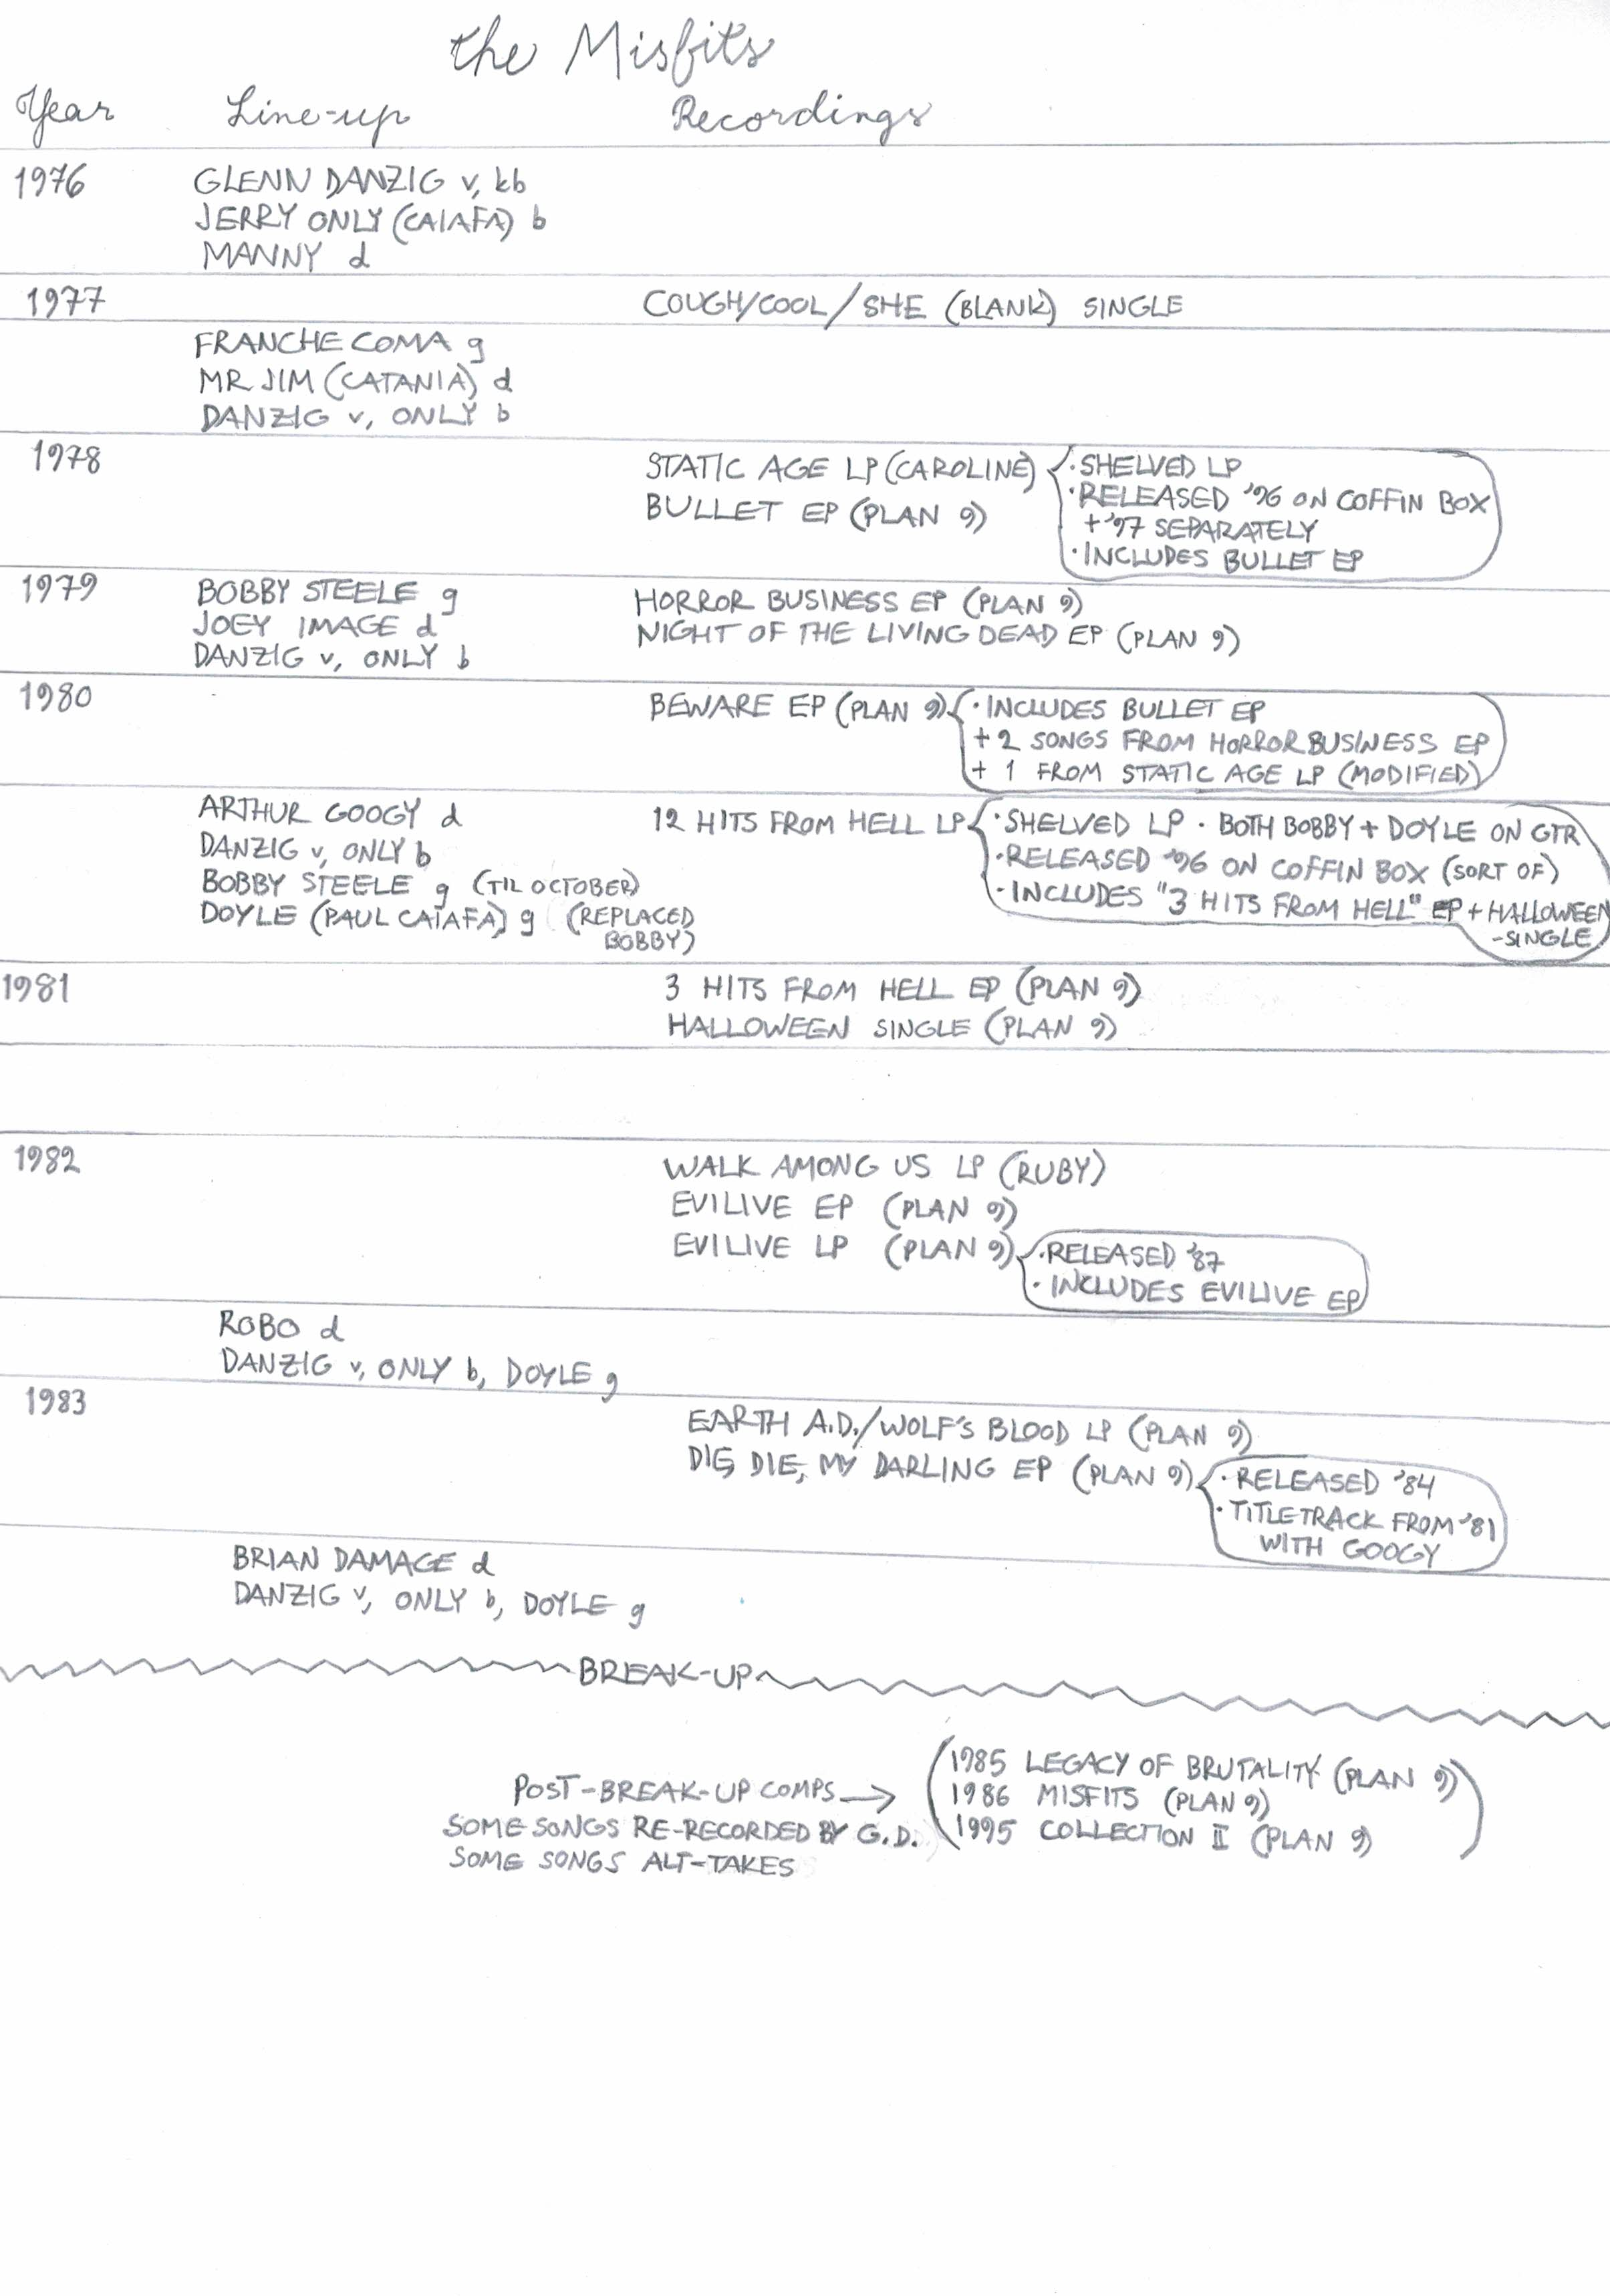 the Misfits
Year Line-up Recordings
1976 GLENN DANZIG v, kb
JERRY ONLY (CAIAFA) b
MANNY d
1977 COUGH/COOL/SHE (BLANK) SINGLE
FRANCHE COMA g
MR JIM (CATANIA) d
DANZIG v, ONLY b
1978 STATIC AGE LP (CAROLINE) · SHELVED LP
· RELEASED '96 ON COFFIN BOX
+ '97 SEPARATELY
· INCLUDES BULLET EP
BULLET EP (PLAN 9)
1979 BOBBY STEELE g HORROR BUSINESS EP (PLAN 9)
JOEY IMAGE d NIGHT OF THE LIVING DEAD EP (PLAN 9)
DANZIG v, ONLY b
1980 BEWARE EP (PLAN 9) · INCLUDES BULLET EP
+ 2 SONGS FROM HORROR BUSINESS EP
+ 1 FROM STATIC AGE LP (MODIFIED)
ARTHUR GOOGY d
DANZIG v, ONLY b
BOBBY STEELE g (TIL OCTOBER)
DOYLE (PAUL CAIAFA) g (REPLACED
BOBBY)
12 HITS FROM HELL LP · SHELVED LP · BOTH BOBBY + DOYLE ON GTR
· RELEASED '96 ON COFFIN BOX (SORT OF)
· INCLUDES "3 HITS FROM HELL" EP + HALLOWEEN
-SINGLE
1981 3 HITS FROM HELL EP (PLAN 9)
HALLOWEEN SINGLE (PLAN 9)
1982 WALK AMONG US LP (RUBY)
EVILIVE EP (PLAN 9)
EVILIVE LP (PLAN 9) · RELEASED '87
· INCLUDES EVILIVE EP
ROBO d
DANZIG v, ONLY b, DOYLE g
1983 EARTH A.D./WOLF'S BLOOD LP (PLAN 9)
DIE, DIE, MY DARLING EP (PLAN 9) · RELEASED '84
· TITLETRACK FROM '81
WITH GOOGY
BRIAN DAMAGE d
DANZIG v, ONLY b, DOYLE g
BREAK-UP
POST-BREAK-UP COMPS → (1985 LEGACY OF BRUTALITY (PLAN 9)
1986 MISFITS (PLAN 9)
1995 COLLECTION II (PLAN 9))
SOME SONGS RE-RECORDED BY G.D.
SOME SONGS ALT-TAKES